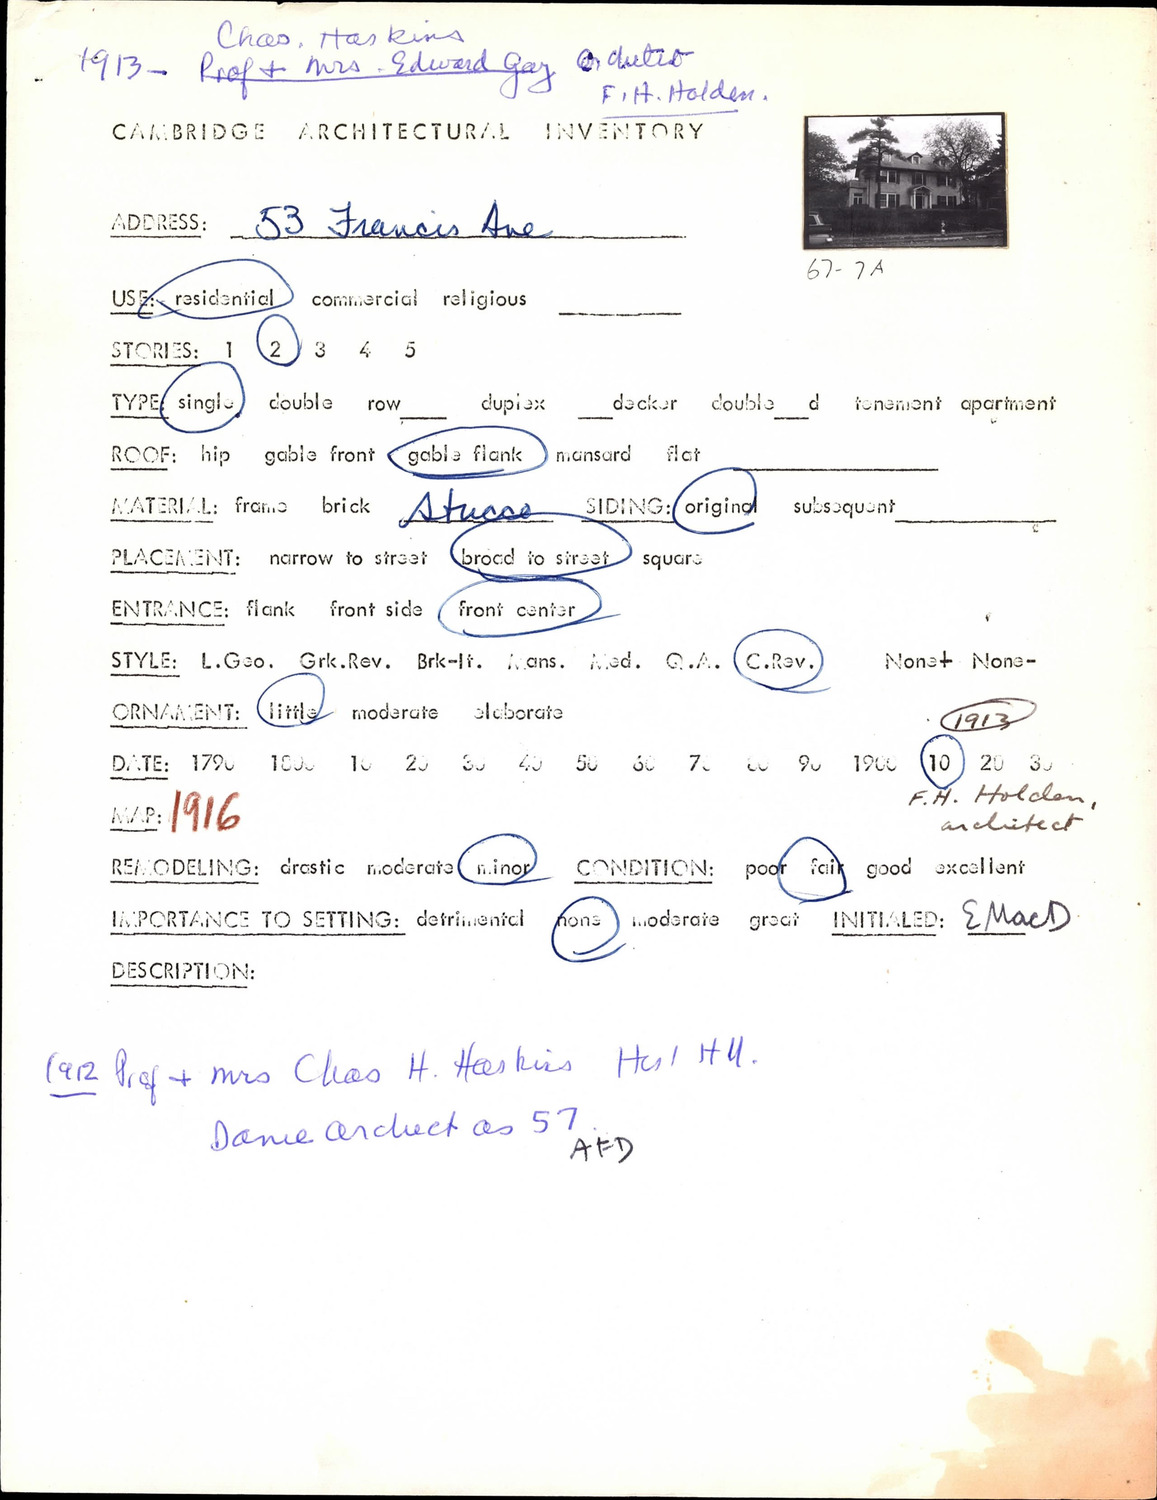 Chas. Haskins
1913- Prof + Mrs. Edward Gay architect
F. H. Holden.
CAMBRIDGE ARCHITECTURAL INVENTORY
ADDRESS: 53 Francis Ave
67-7A
USE: residential commercial religious
STORIES: 1 2 3 4 5
TYPE: single double row____ duplex ___decker double___d tenement apartment
ROOF: hip gable front gable flank mansard flat
MATERIAL: frame brick Stucco SIDING: original subsequent
PLACEMENT: narrow to street broad to street square
ENTRANCE: flank front side front center
STYLE: L.Geo. Grk.Rev. Brk-It. Mans. Med. Q.A. C.Rev. None+ None-
ORNAMENT: little moderate elaborate
1913
DATE: 1790 1800 10 20 30 40 50 60 70 80 90 1900 10 20 30
F.H. Holden,
architect
MAP: 1916
REMODELING: drastic moderate minor CONDITION: poor fair good excellent
IMPORTANCE TO SETTING: detrimental none moderate great INITIALED: EMacD
DESCRIPTION:
1912 Prof + Mrs Chas H. Haskins
architect as 57
AFD